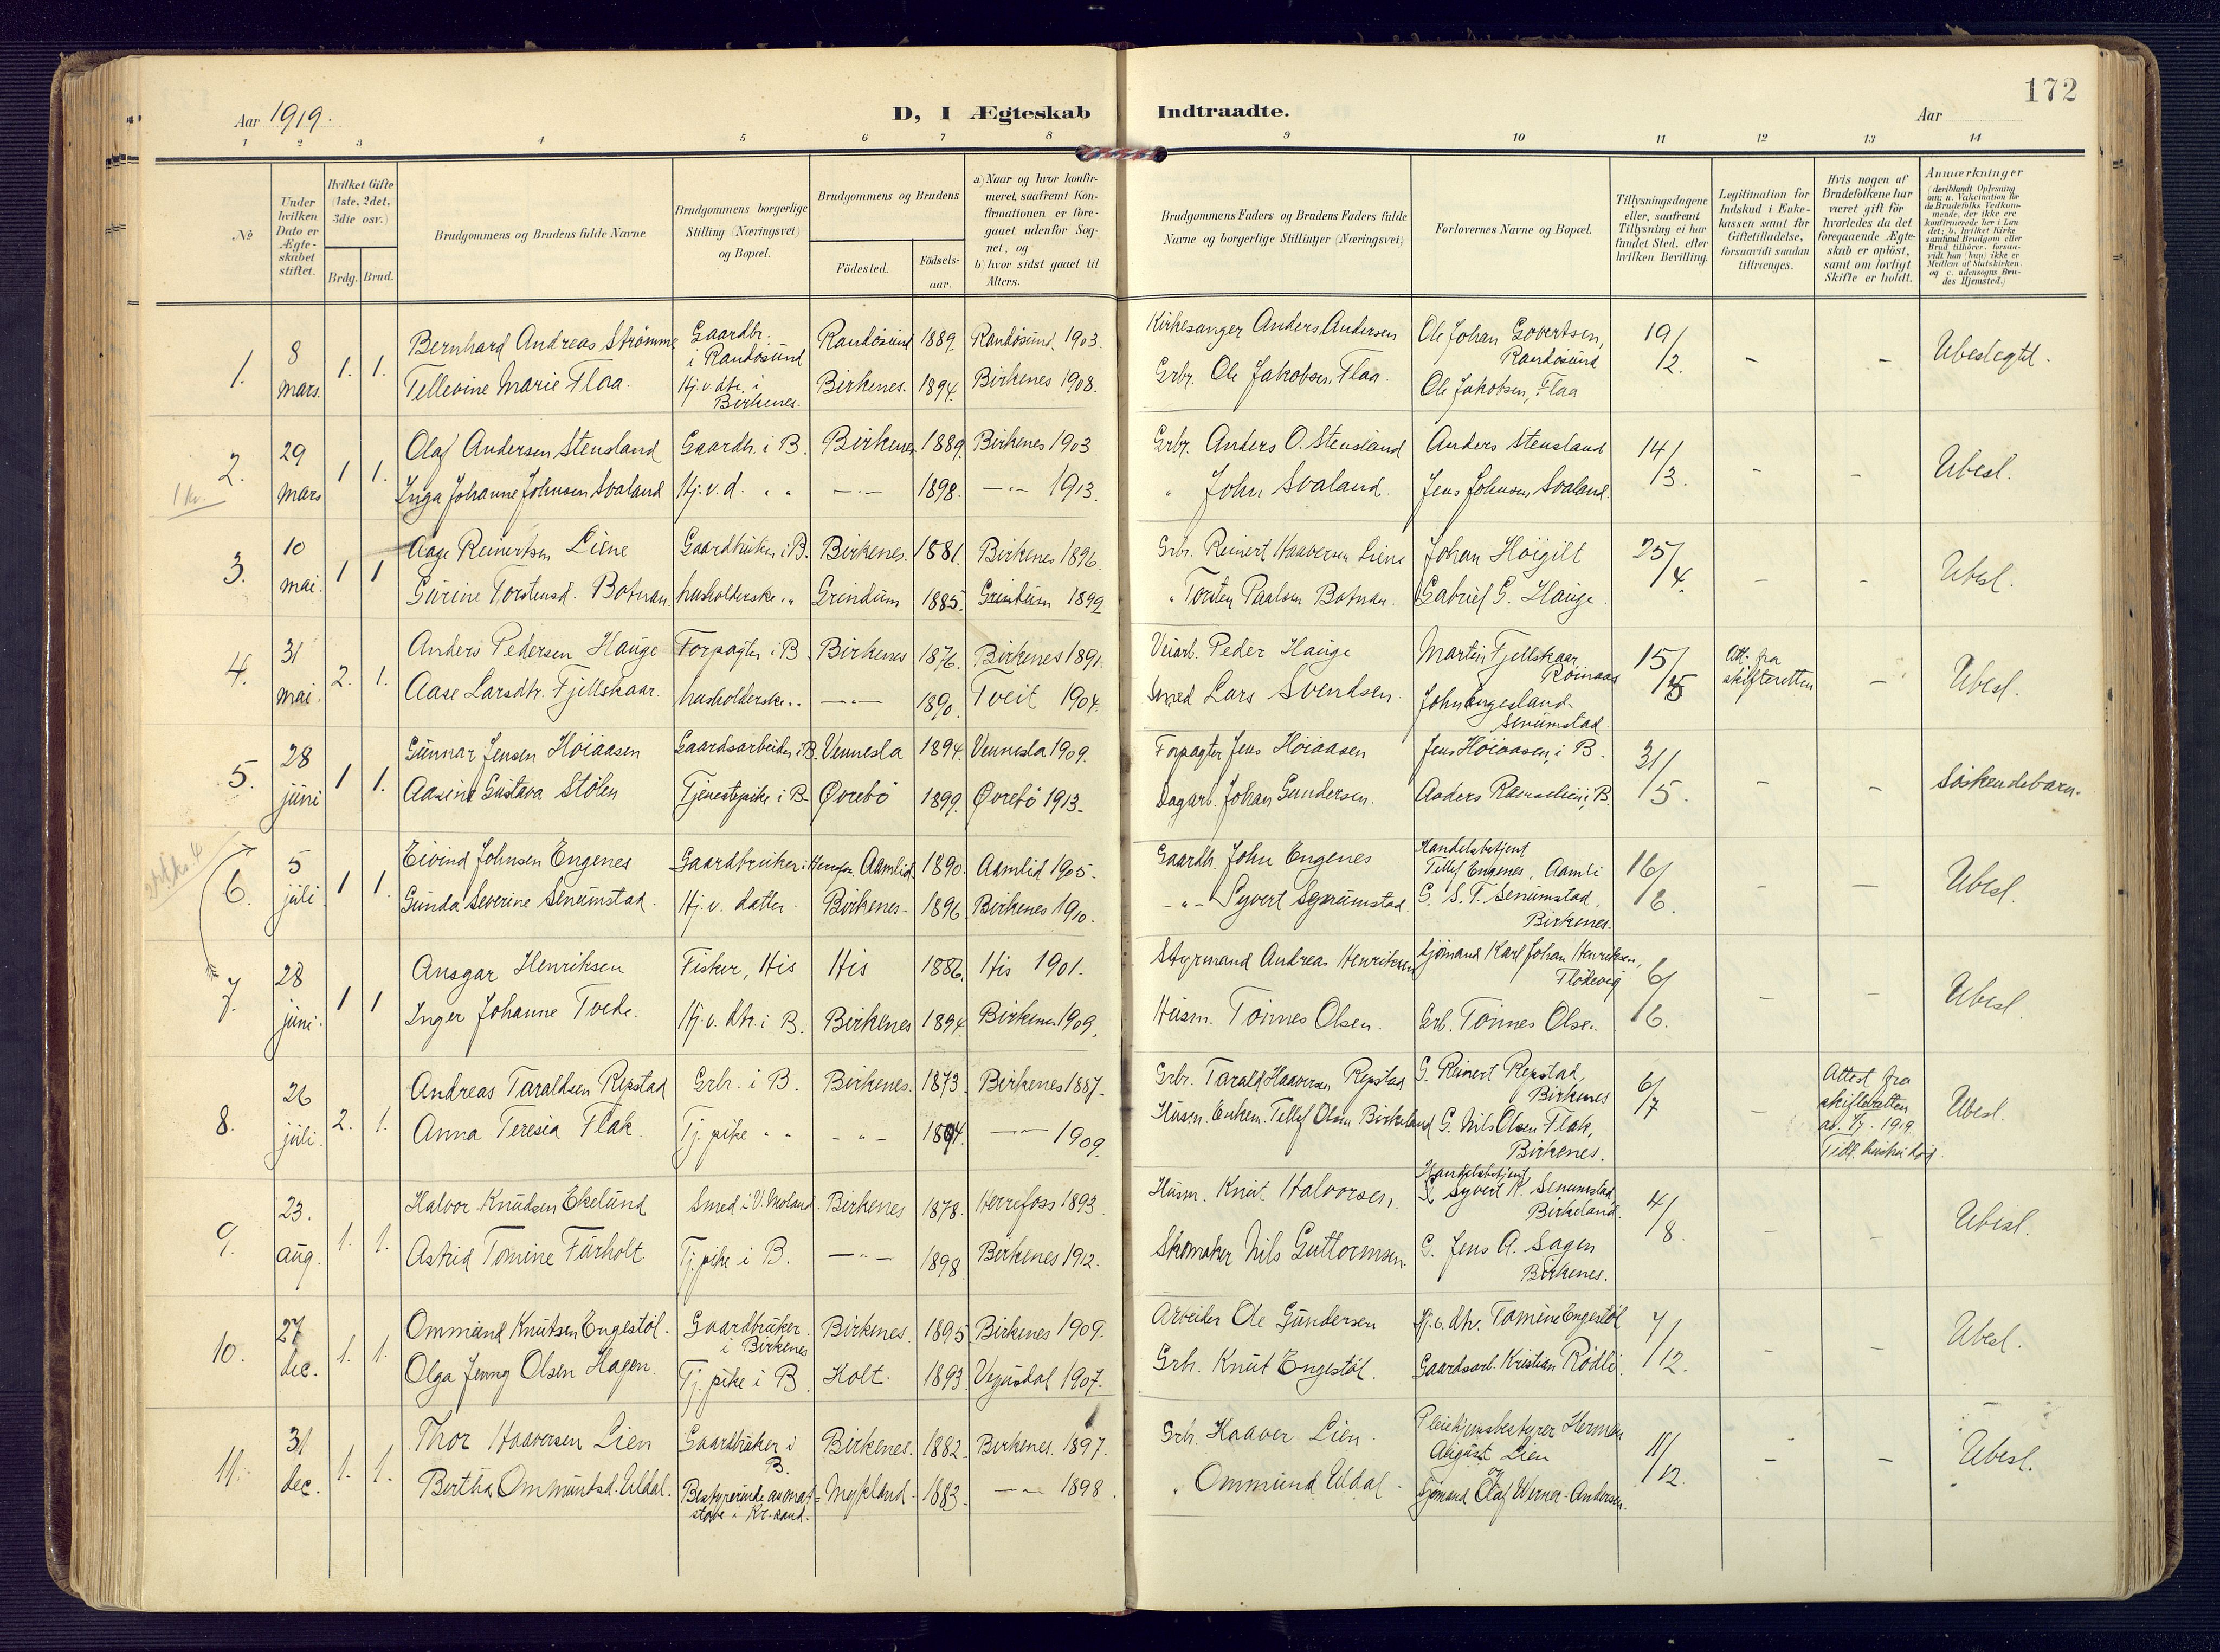 172
Aar 1919.
D, I Ægteskab Indtraadte.
Aar
1 2 3 4 5 6 7 8 9 10 11 12 13 14
№
Under hvilken Dato er Ægteskabet stiftet.
Hvilket Gifte (1ste, 2det, 3die osv.)
Brdg. Brud.
Brudgommens og Brudens fulde Navne
Brudgommens borgerlige Stilling (Næringsvei) og Bopæl.
Brudgommens og Brudens
Födested.
Födselsaar.
a) Naar og hvor konfirmeret, saafremt Konfirmationen er foregaaet udenfor Sognet, og
b) hvor sidst gaaet til Alters.
Brudgommens Faders og Brudens Faders fulde Navne og borgerlige Stillinger (Næringsvei)
Forlovernes Navne og Bopæl.
Tillysningsdagene eller, saafremt Tillysning ei har fundet Sted, efter hvilken Bevilling.
Legitimation for Indskud i Enkekassen samt for Giftetilladelse, forsaavidt saadan tiltrænges.
Hvis nogen af Brudefolkene har været gift för hvorledes da det foregaaende Ægteskab er oplöst, samt om lovligt Skifte er holdt.
Anmærkninger (deriblandt Oplysning om: a. Vakcination for de Brudefolks Vedkommende, der ikke ere konfirmerede her i Landet; b. hvilket Kirkesamfund Brudgom eller Brud tilhörer, forsaavidt han (hun) ikke er Medlem af Statskirken og c. udensogns Brudes Hjemsted.)
1. 8 mars. 1. 1.
Bernhard Andreas Strømme Gaardbr. i Randösund Randösund 1889. Randösund. 1903. Kirkesanger Anders Andersen Ole Johan Govertsen, Randösund 19/2. - - Ubeslegtet.
Tellevine Marie Flaa. Hj.v.dtr. i Birkenes. Birkenes. 1894. Birkenes 1908. Grbr. Ole Jakobsen Flaa. Ole Jakobsen, Flaa
2. 29 mars 1 1.
1 kv.
Olaf Andersen Stensland Gaardbr. i B. Birkenes. 1889. Birkenes 1903 Grbr. Anders O. Stensland Anders Stensland 14/3. - - Ubesl.
Inga Johanne Johnsen Svaland Hj.v.d. " " -"- 1898. -"- 1913. " John Svaland. Jens Johnsen Svaland.
3. 10 mai. 1 1
Aage Reinertsen Liene Gaardbruker i B. Birkenes. 1881. Birkenes 1896. Grbr. Reinert Haaversen Liene Johan Höigilt 25/4. - - Ubesl.
Gurine Torstensd. Botnan. husholderske " Grindum 1885. Grindum 1899 " Torsten Paalsen Botnan. Gabriel G. Hauge
4. 31 mai. 2. 1.
Anders Pedersen Hauge Forpagter i B. Birkenes 1876. Birkenes 1891. Veiarb. Peder Hauge Martin Fjellskaar Röinaas 15/5 Att. fra skifteretten - Ubesl.
Aase Larsdtr. Fjellskaar. husholderske " -"- 1890. Tveit 1904. Smed Lars Svendsen. John Engesland Senumstad.
5. 28 juni 1 1.
Gunnar Jensen Höiaasen Gaardsarbeider i B. Vennesla 1894. Vennesla 1909. Forpagter Jens Höiaasen Jens Höiaasen i B. 31/5. - - Söskendebarn.
Aasine Gustava Stölen Tjenestepike i B. Øvrebö 1899. Øvrebö 1913. Dagarb. Johan Gundersen. Anders i B.
6. 5 juli 1 1.
Eivind Johnsen Engenes Gaardbruker i Aamlid. 1890. Aamlid 1905. Gaardb. John Engenes Handelsbetjent Tellef Engenes, Aamli 16/6. - - Ubesl.
Gunda Severine Senumstad. Hj.v. datter. Birkenes. 1896. Birkenes 1910. -"- Syvert Senumstad. G. S. T. Senumstad, Birkenes.
7. 28 juni. 1 1
Ansgar Henriksen Fisker, His His 1886. His 1901. Styrmand Andreas Henriksen Sjömand Karl Johan Henriksen, Flödevig 6/6. - - Ubesl.
Inger Johanne Tvede. Hj.v. dtr. i B. Birkenes 1894. Birkenes 1909. Husm. Tönnes Olsen. Grb. Tönnes Olsen.
8. 26 juli. 2. 1.
Andreas Taraldsen Repstad Grbr. i B. Birkenes. 1873. Birkenes 1887. Grbr. Tarald Haaversen Repstad G. Reinert Repstad, Birkenes 6/7 - Attest fra skifteretten av 1/7. 1919. Tidl. hustru död. Ubesl.
Anna Teresia Flak. Tj. pike " " -"- 1894. -"- 1909. Husm. Enkem. Tellef Olsen Birkeland G. Nils Olsen Flak, Birkenes.
9. 23. aug. 1. 1.
Halvor Knudsen Ekelund Smed i V. Moland. Birkenes 1878. Herrefoss 1893. Husm. Knut Halvorsen. Handelsbetjent Syvert K. Senumstad, Birkeland. 4/8. - - Ubesl.
Astrid Tomine Furholt Tj. pike i B. -"- 1898. Birkenes 1912. Skomaker Nils Guttormsen. G. Jens A. Sagen Birkenes.
10. 27 dec. 1. 1.
Ommund Knutsen Engestöl. Gaardbruker i Birkenes Birkenes. 1895 Birkenes 1909. Arbeider Ole Gundersen Hj.v. dtr. Tomine Engestöl 7/12. - - Ubesl.
Olga Jenny Olsen Hagen. Tj. pike i B. Holt. 1893. Vegusdal 1907. Grbr. Knut Engestöl. Gaardsarb. Kristian Rödli.
11. 31 dec. 1. 1.
Thor Haaversen Lien Gaardbruker i B. Birkenes. 1882. Birkenes. 1897. Grb. Haaver Lien. Pleiehjemsbestyrer Herman August Lien og 11/12. - - Ubesl.
Bertha Ommundsd. Uldal. Bestyrerinde av matstove i Kr.sand. Mykland. 1883. -"- 1898. " Ommund Uldal. Sjömand Olaf Werner-Andersen.